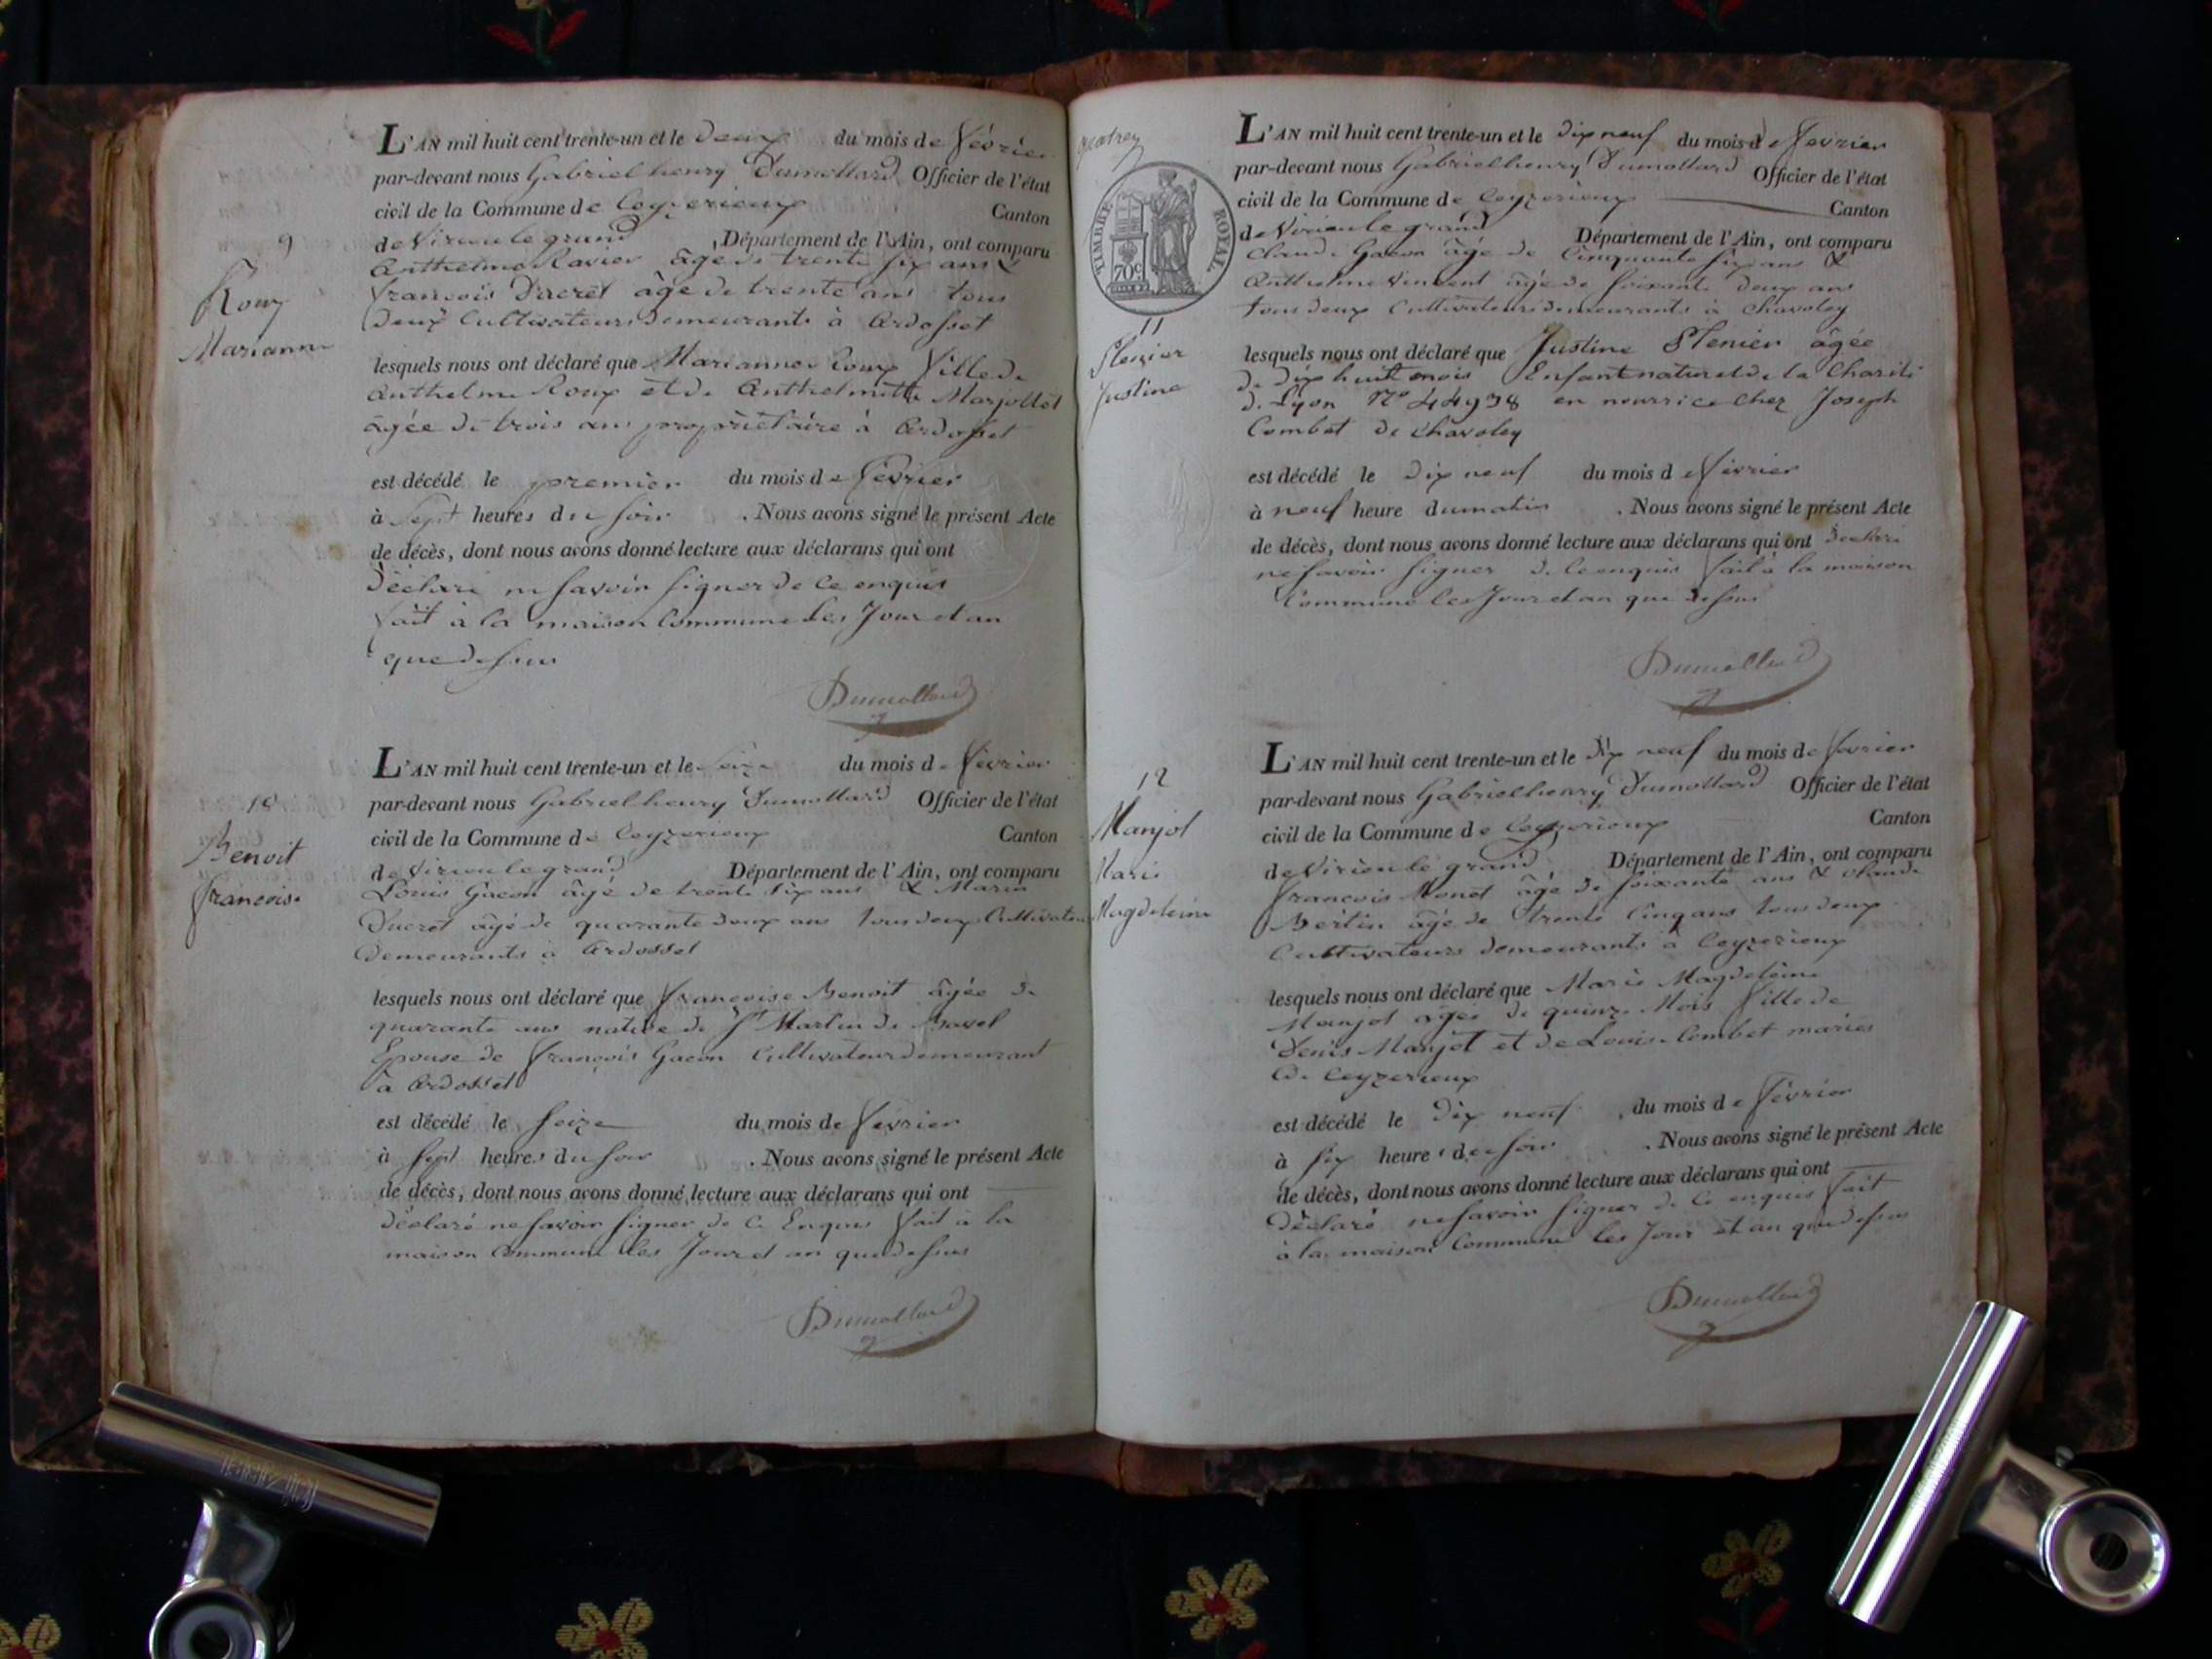 9
Roux
Marianne
L'AN mil huit cent trente-un et le deux du mois de février
par-devant nous Gabriel henry Dumollard Officier de l'état
civil de la Commune de Ceyzerieux Canton
de Virieu le grand Département de l'Ain, ont comparu
Anthelme Ravier âgé de trente six ans &
francois Ducret âgé de trente ans tous
deux Cultivateurs demeurants à Ardosset
lesquels nous ont déclaré que Marianne Roux fille de
Anthelme Roux et de Anthelmette Marjollet
âgée de trois ans propriétaire à Ardosset
est décédé le premier du mois de février
à Sept heures du soir . Nous avons signé le présent Acte
de décès, dont nous avons donné lecture aux déclarans qui ont
déclaré ne savoir signer de ce enquis
fait à la maison Commune les Jour et an
que dessus
Dumollard
10
Benoit
francoise
L'AN mil huit cent trente-un et le Seize du mois de février
par-devant nous Gabriel henry Dumollard Officier de l'état
civil de la Commune de Ceyzerieux Canton
de Virieu le grand Département de l'Ain, ont comparu
Louis Gacon âgé de trente six ans & Marin
Ducret âgé de quarante deux ans tous deux Cultivateurs
Demeurants à Ardosset
lesquels nous ont déclaré que françoise Benoit âgée de
quarante ans native de St Martin de Bavel
Epouse de françois Gacon Cultivateur demeurant
à Ardosset
est décédé le Seize du mois de février
à Sept heures du soir . Nous avons signé le présent Acte
de décès, dont nous avons donné lecture aux déclarans qui ont
déclaré ne savoir signer de Ce Enquis fait à la
maison Commune les Jour et an que dessus
Dumollard
TIMBRE ROYAL
70c
11
Plenier
Justine
L'AN mil huit cent trente-un et le dix neuf du mois de fevrier
par-devant nous Gabriel henry Dumollard Officier de l'état
civil de la Commune de Ceyzerieux Canton
de Virieu le grand Département de l'Ain, ont comparu
Claude Gacon âgé de Cinquante six ans &
Anthelme Vincent âgé de soixante deux ans
tous deux Cultivateurs demeurants à Chavoley
lesquels nous ont déclaré que Justine Plenier âgée
de dix huit mois Enfant naturel de la Charité
de Lyon No 44938 en nourrice chez Joseph
Combet de Chavoley
est décédé le dix neuf du mois de février
à neuf heure du matin . Nous avons signé le présent Acte
de décès, dont nous avons donné lecture aux déclarans qui ont déclaré
ne savoir signer de Ce enquis fait à la maison
Commune les Jour et an que dessus
Dumollard
12
Manjot
Marie
Magdeleine
L'AN mil huit cent trente-un et le dix neuf du mois de fevrier
par-devant nous Gabriel henry Dumollard Officier de l'état
civil de la Commune de Ceyzerieux Canton
de Virieu le grand Département de l'Ain, ont comparu
francois Monet âgé de soixante ans & Claude
Bertin âgé de trente Cinq ans tous deux
Cultivateurs demeurants à Ceyzerieux
lesquels nous ont déclaré que Marie Magdeleine
Manjot âgée de quinze Mois fille de
Denis Manjot et de Louise Combet mariés
de Ceyzerieux
est décédé le dix neuf du mois de février
à six heures du soir . Nous avons signé le présent Acte
de décès, dont nous avons donné lecture aux déclarans qui ont
déclaré ne savoir signer de Ce enquis fait
à la maison Commune les Jour et an que dessus
Dumollard